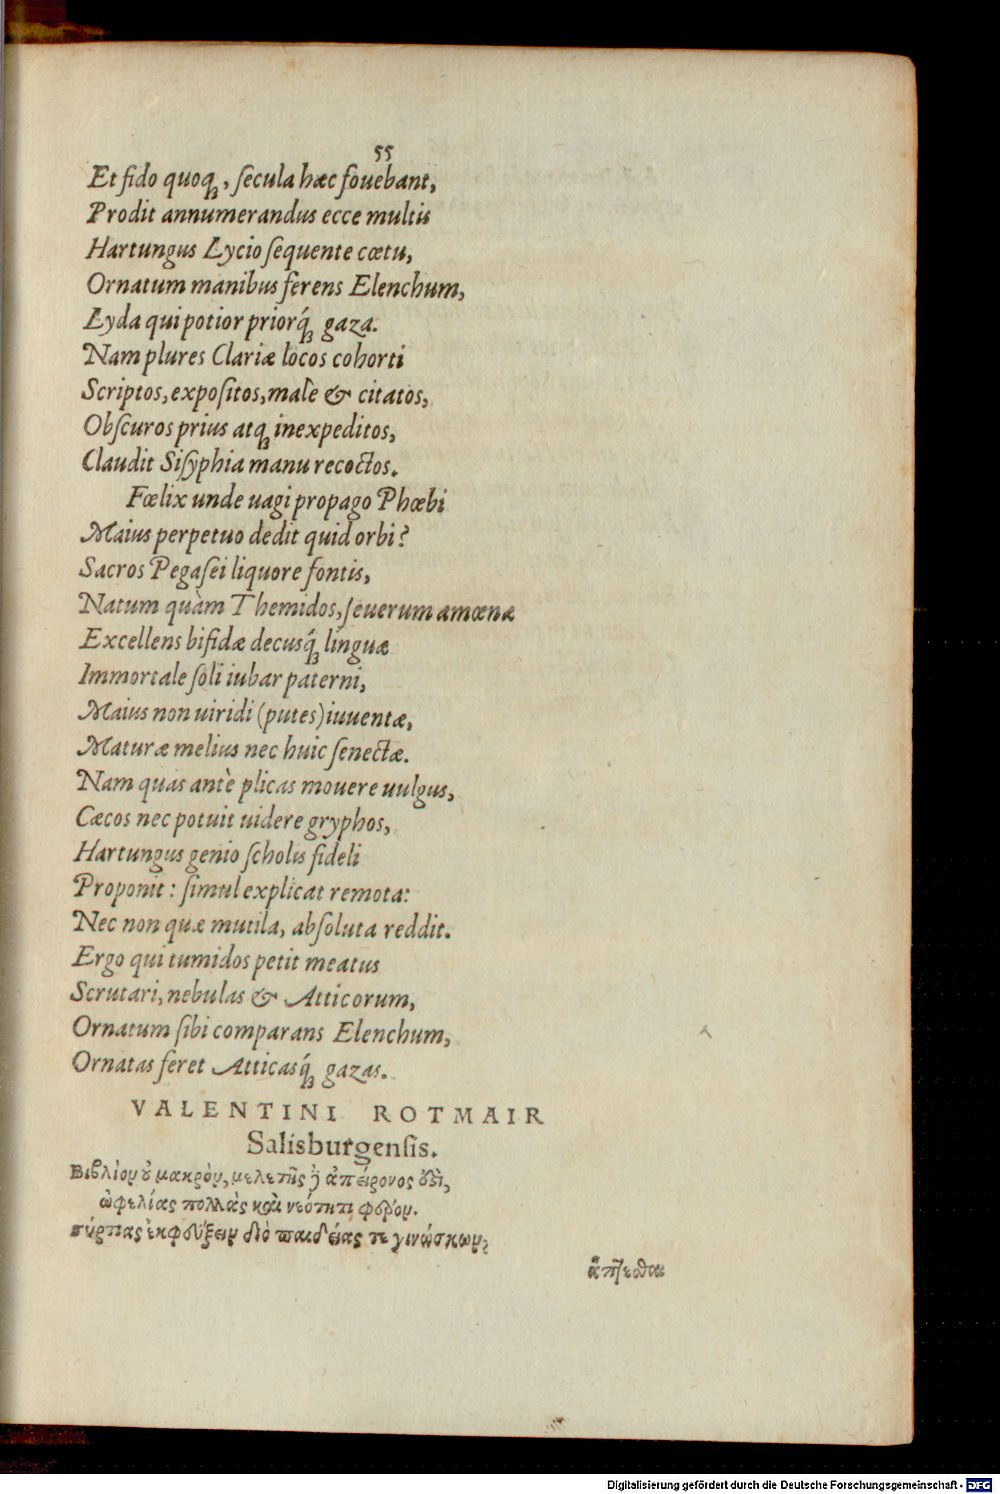 55
Et fido quoq́ꝫ, ſecula hæc fouebant,
Prodit annumerandus ecce multis
Hartungus Lycio ſequente cœtu,
Ornatum manibus ferens Elenchum,
Lyda qui potior priorq́ꝫ gaza.
Nam plures Clariæ locos cohorti
Scriptos, expoſitos, malè & citatos,
Obſcuros prius atqꝫ inexpeditos,
Claudit Siſyphia manu recoctos.
Fœlix unde uagi propago Phœbi
Maius perpetuo dedit quid orbi?
Sacros Pegaſei liquore fontis,
Natum quàm Themidos, ſeuerum amœnæ
Excellens bifidæ decusq́ꝫ linguæ
Immortale ſoli iubar paterni,
Maius non uiridi (putes) iuuentæ,
Maturæ melius nec huic ſenectæ.
Nam quas antè plicas mouere uulgus,
Cæcos nec potuit uidere gryphos,
Hartungus genio ſcholis fideli
Proponit: ſimul explicat remota:
Nec non quæ mutila, abſoluta reddit.
Ergo qui tumidos petit meatus
Scrutari, nebulas & Atticorum,
Ornatum ſibi comparans Elenchum,
Ornatas feret Atticasq́ꝫ gazas.
VALENTINI ROTMAIR
Saliſburgenſis.
Βιβλίον οὐ μακρὸν, μελετῆς ἢ ἀπείρονος ὅδὶ,
ὠφελίας πολλὰς καὶ νεότητι φορόν.
ἐκφεύξειν διὸ παιδείας τε γινώσκων,
ἅπτεσθαι
Digitalisierung gefördert durch die Deutsche Forschungsgemeinschaft - DFG